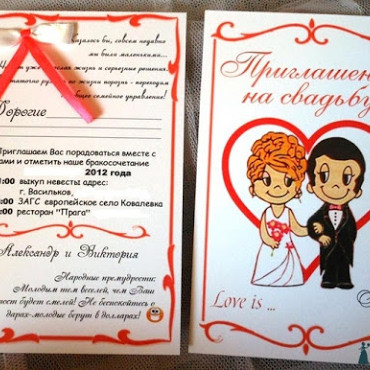 казалось бы, совсем недавно
мы были маленькими...
уже жизнь и серьезные решения.
по жизни порознь - переходим
семейное управление!
Дорогие
Приглашаем Вас порадоваться вместе с
ами и отметить наше бракосочетание
2012 года
:00 выкуп невесты адрес:
г. Васильков,
:00 ЗАГС европейское село Ковалевка
:00 ресторан "Прага"
Александр и Виктория
Народные премудрости:
Молодым тем веселей, чем Ваш
тост будет смелей! Не беспокойтесь о
дарах-молодые берут в долларах!
Приглашен
на свадьбу
Love is ...